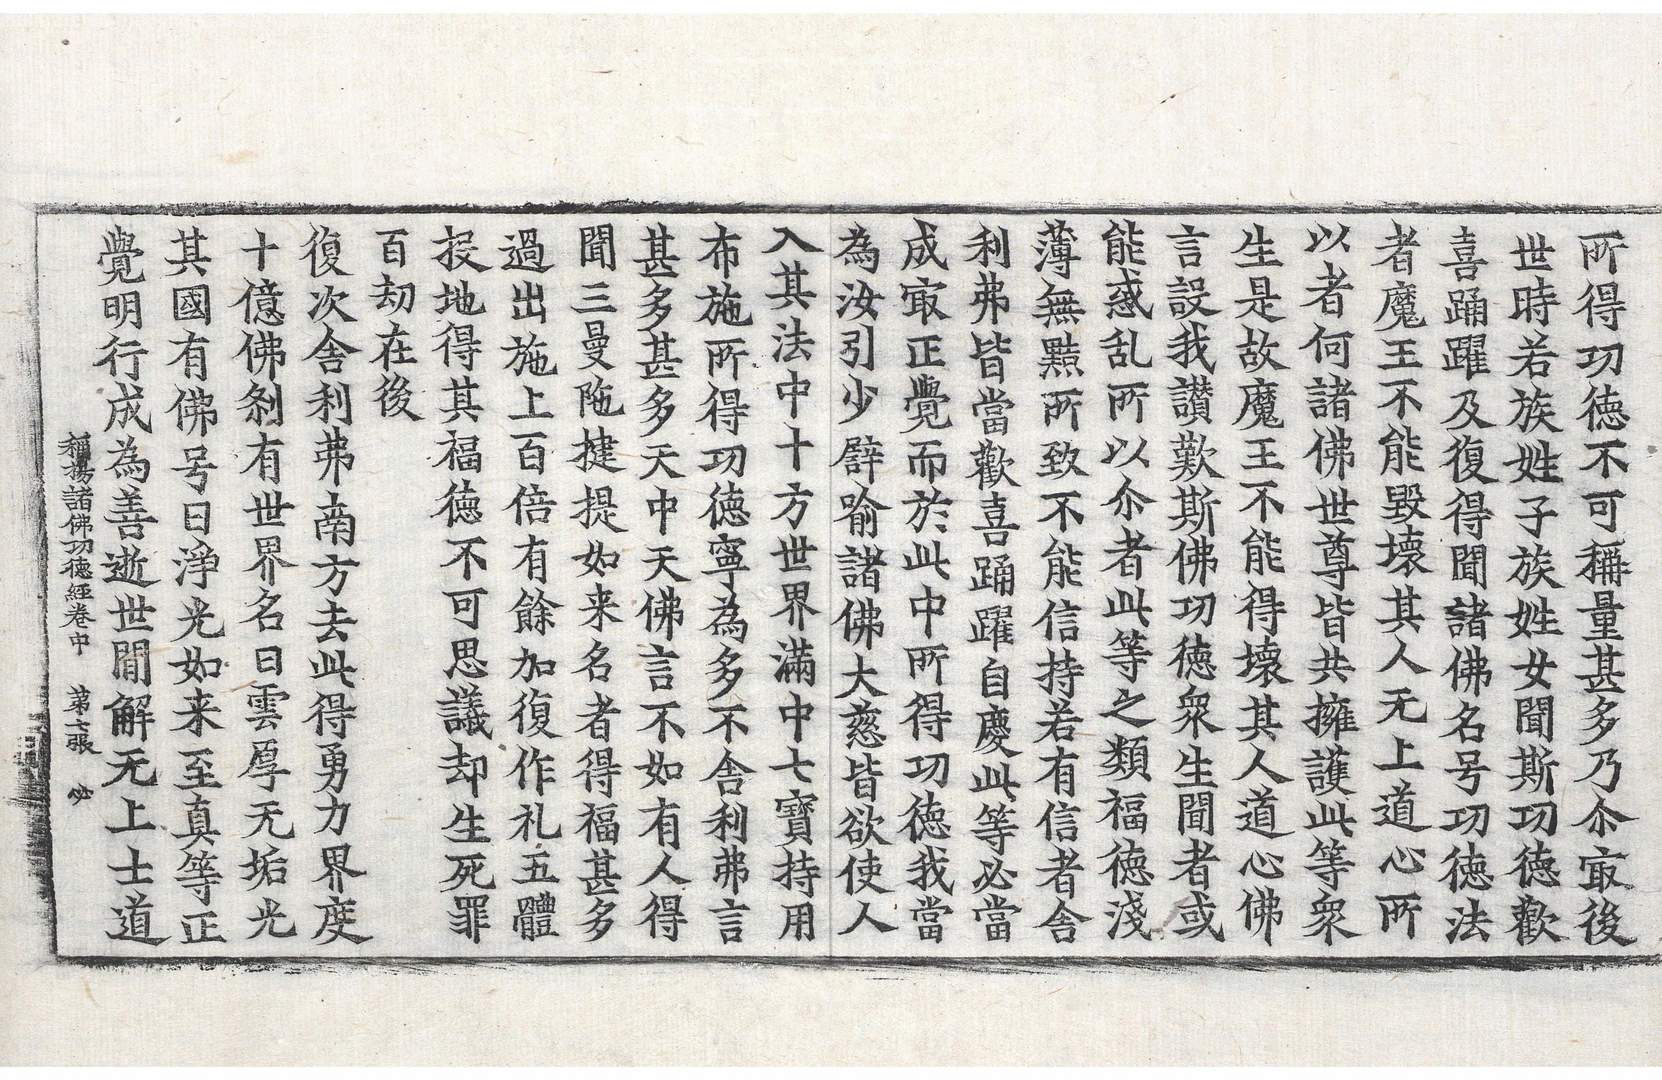 所得功德不可稱量甚多乃尒㝡後
世時若族姓子族姓女聞斯功德歡
喜踊躍及復得聞諸佛名号功德法
者魔王不能毀壞其人无上道心所
以者何諸佛世尊皆共擁護此等衆
生是故魔王不能得壞其人道心佛
言設我讃歎斯佛功德衆生聞者或
能惑乱所以尒者此等之類福德淺
薄無黠所致不能信持若有信者舎
利弗皆當歡喜踊躍自慶此等必當
成㝡正覺而於此中所得功德我當
為汝引少譬喻諸佛大慈皆欲使人
入其法中十方世界滿中七寶持用
布施所得功德寧為多不舎利弗言
甚多甚多天中天佛言不如有人得
聞三曼陁揵提如来名者得福甚多
過出施上百倍有餘加復作礼五體
投地得其福德不可思議却生死罪
百劫在後
復次舎利弗南方去此得勇力界度
十億佛刹有世界名曰雲厚无垢光
其國有佛号曰淨光如来至真等正
覺明行成為善逝世閒解无上士道
稱揚諸佛功德經卷中　第七張　必